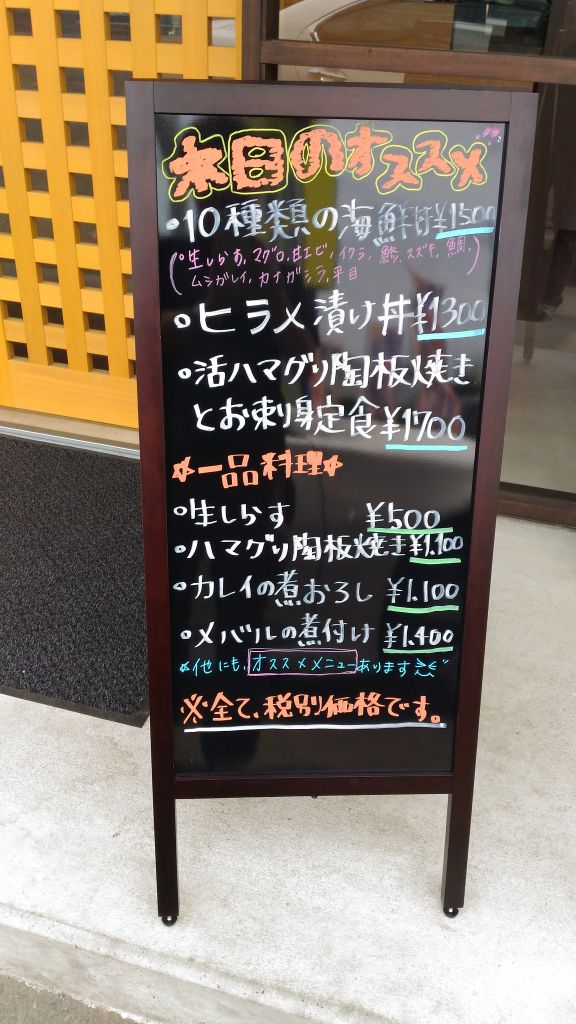 本日のオススメ
•10種類の海鮮丼¥1500
(•生しらす,マグロ,甘エビ,イクラ,鯵,スズキ,鯛,
ムシガレイ,カナガシラ,平目)
•ヒラメ漬け丼¥1300
•活ハマグリ陶板焼き
とお刺身定食¥1700
☆一品料理☆
•生しらす ¥500
•ハマグリ陶板焼き¥1.100
•カレイの煮おろし ¥1.100
•メバルの煮付け ¥1.400
☆他にも,オススメメニューあります
※全て、税別価格です。